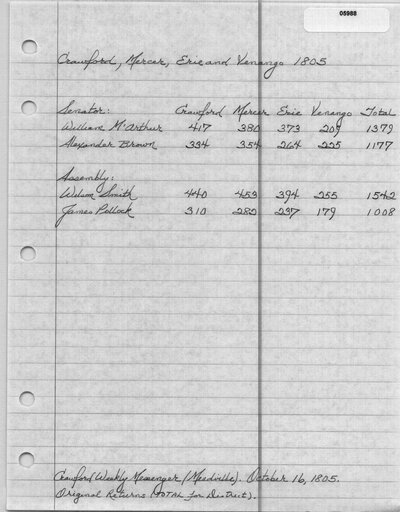 05988
Crawford, Mercer, Erie and Venango 1805
Senator: Crawford Mercer Erie Venango Total
William McArthur 417 380 373 209 1379
Alexander Brown 334 354 264 225 1177
Assembly:
Wilson Smith 440 453 394 255 1542
James Pollock 310 282 237 179 1008
Crawford Weekly Messenger (Meadville). October 16, 1805.
Original Returns (TOTAL for District).